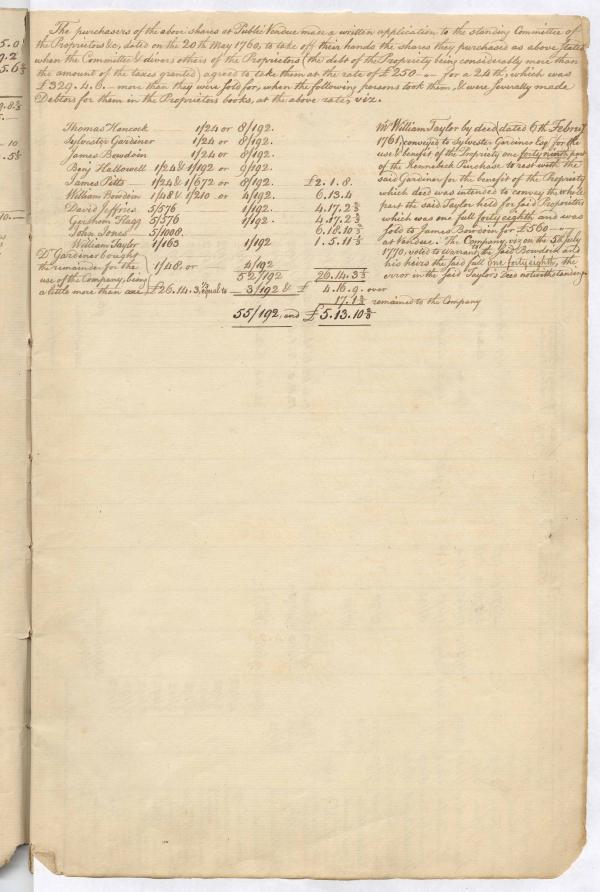 5.0
9.2
5.6⅓
9.8⅔
5.—
10
.5⅓
10.—
The purchasers of the above shares at Public Vendue made a written application to the standing Committee of
the Proprietors &c, dated on the 20th May 1760, to take off their hands the shares they purchased as above stated
when the Committee & divers others of the Proprietors (the debt of the Propriety being considerably more than
the amount of the taxes granted) agreed to take them at the rate of £250 —"— for a 24th; which was
£329.4.8. — more than they were sold for, when the following persons took them, & were severally made
Debtors for them in the Proprietors books, at the above rate, viz.
Thomas Hancock 1/24 or 8/192.
Sylvester Gardiner 1/24 or 8/192.
James Bowdoin 1/24 or 8/192.
Benj Hallowell 1/24 & 1/192 or 9/192
James Pitts 1/24 & 1/672 or 8/192 £2.1.8.
William Bowdoin 1/48 & 1/210 or 4/192. 6.13.4
David Jeffries 5/576 1/192. 4.17.2⅔
Gershom Flagg 5/576 1/192. 4.17.2⅔
John Jones 5/1008. 6.18.10⅔
William Taylor 1/163 1/192 1.5.11⅓
Dr Gardiner bought
the remainder for the 1/48. or 4/192
use of the Company, being 52/192 26.14.3⅓
a little more than one £26.14.3⅓ equal to 3/192 & £ 4.16.9. over
17.1⅓ remained to the Company
55/192, and £5.13.10⅔
Mr William Taylor by deed dated 6th Febrey
1761, conveyed to Sylvester Gardiner Esq for the
use & benefit of the Propriety one forty ninth part
of the Kennebeck Purchase to rest with the
said Gardiner for the benefit of the Propriety
which deed was intended to convey the whole
part the said Taylor held for said Proprietors
which was one full forty eighth and was
sold to James Bowdoin for £560 —"—
at Vendue. The Company, viz on the 5th July
1770, voted to warrant the said Bowdoin and
his heirs the said full one forty eighth, the
error in the said Taylor's Deed notwithstanding